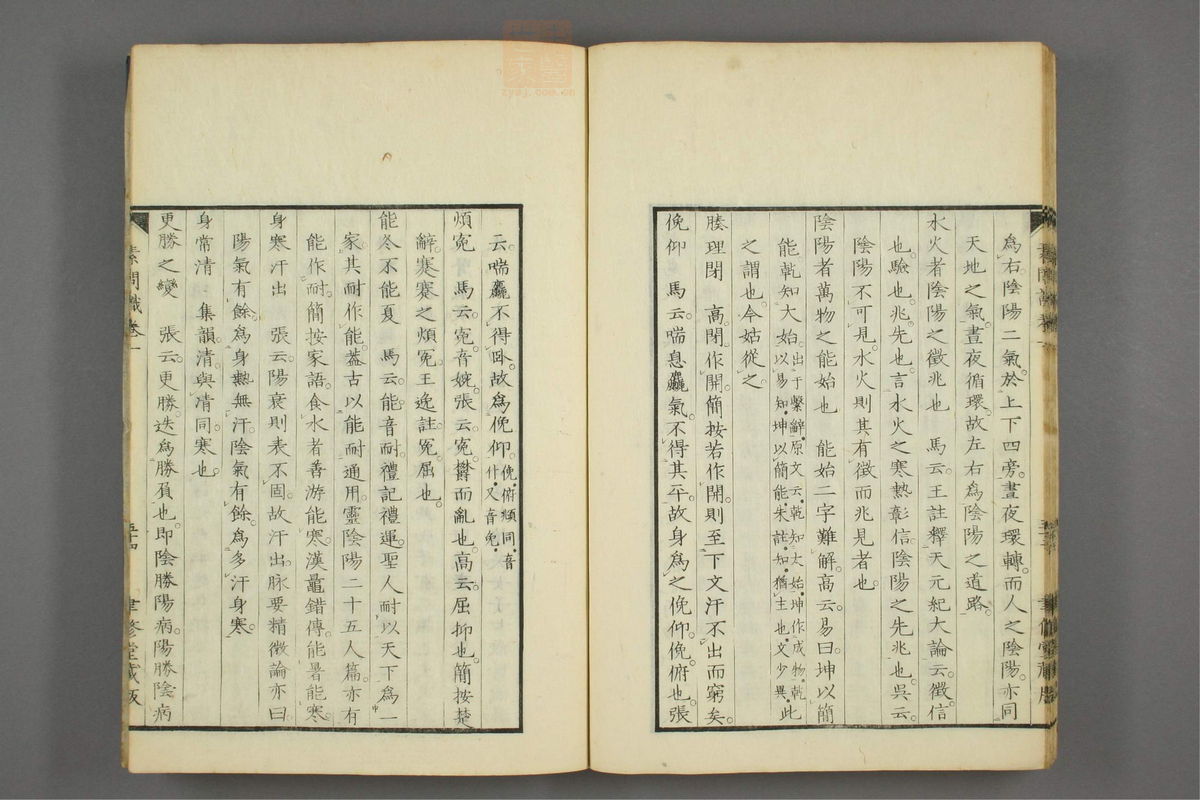 爲右陰陽二氣於上下四旁晝夜環轉而人之陰陽亦同
天地之氣晝夜循環故左右爲陰陽之道路
水火者陰陽之徵兆也　馬云王註釋天元紀大論云徵信
也驗也兆先也言水火之寒熱彰信陰陽之先兆也吳云
陰陽不可見水火則其有徵而兆見者也
陰陽者萬物之能始也　能始二字難解高云易曰坤以簡
能乾知大始出于繫辭原文云乾知大始坤作成物乾以易知坤以簡能朱註知猶主也文少異此
之謂也今姑從之
腠理閉　高閉作開簡按若作開則至下文汗不出而窮矣
俛仰　馬云喘息麤氣不得其平故身爲之俛仰俛俯也張
云喘麤不得臥故爲俛仰俛俯頫同音什又音免
煩寃　馬云寃音婉張云寃鬱而亂也高云屈抑也簡按楚
辭蹇蹇之煩寃王逸註寃屈也
能冬不能夏　馬云能音耐禮記禮運聖人耐以天下爲一
家其耐作能葢古以能耐通用靈陰陽二十五人篇亦有
能作耐簡按家語食水者善游能寒漢鼂錯傳能暑能寒
身寒汗出　張云陽衰則表不固故汗出脉要精微論亦曰
陽氣有餘爲身熱無汗陰氣有餘爲多汗身寒
身常清　集韻清與凊同寒也
更勝之變　張云更勝迭爲勝負也即陰勝陽病陽勝陰病
素問識卷一
聿修堂藏版